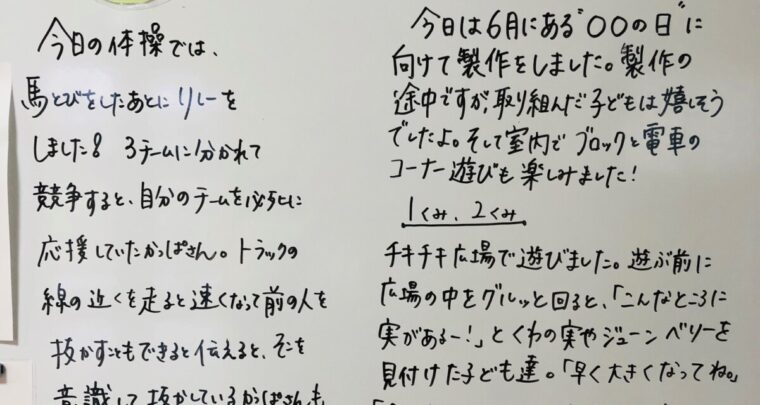 今日の体操では、
馬とびをしたあとにリレーを
しました! 3チームに分かれて
競争すると、自分のチームを必死に
応援していたかっぱさん。トラックの
線の近くを走ると速くなって前の人を
抜かすこともできると伝えると、そこを
意識して抜かしているかっぱさんも
今日は6月にある"〇〇の日"に
向けて製作をしました。製作の
途中ですが、取り組んだ子どもは嬉しそう
でしたよ。そして室内でブロックと電車の
コーナー遊びも楽しみました!
1くみ、2くみ
チキチキ広場で遊びました。遊ぶ前に
広場の中をグルッと回ると、「こんなところに
実があるー!」とくわの実やジューンベリーを
見付けた子ども達。「早く大きくなってね。」